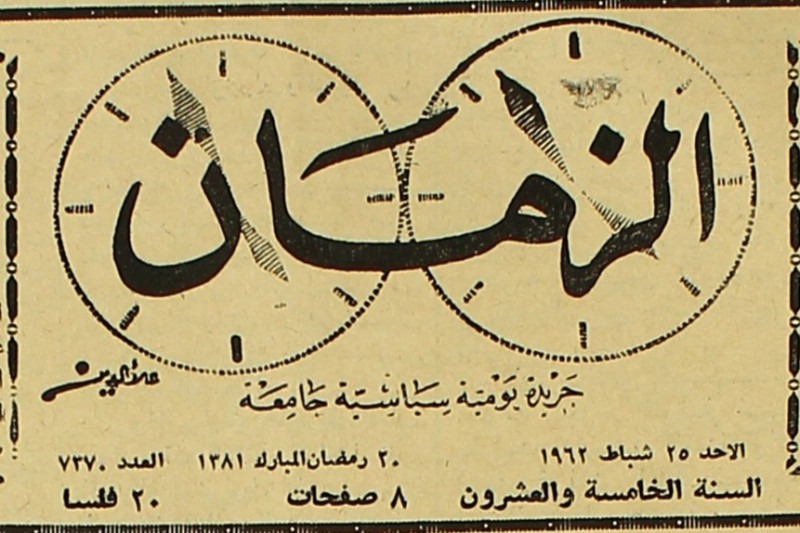 الزمان
علاء الدين
جريدة يومية سياسية جامعة
الاحد ٢٥ شباط ١٩٦٢ ٢٠ رمضان المبارك ١٣٨١ العدد ٧٣٧٠
السنة الخامسة والعشرون ٨ صفحات ٢٠ فلسا